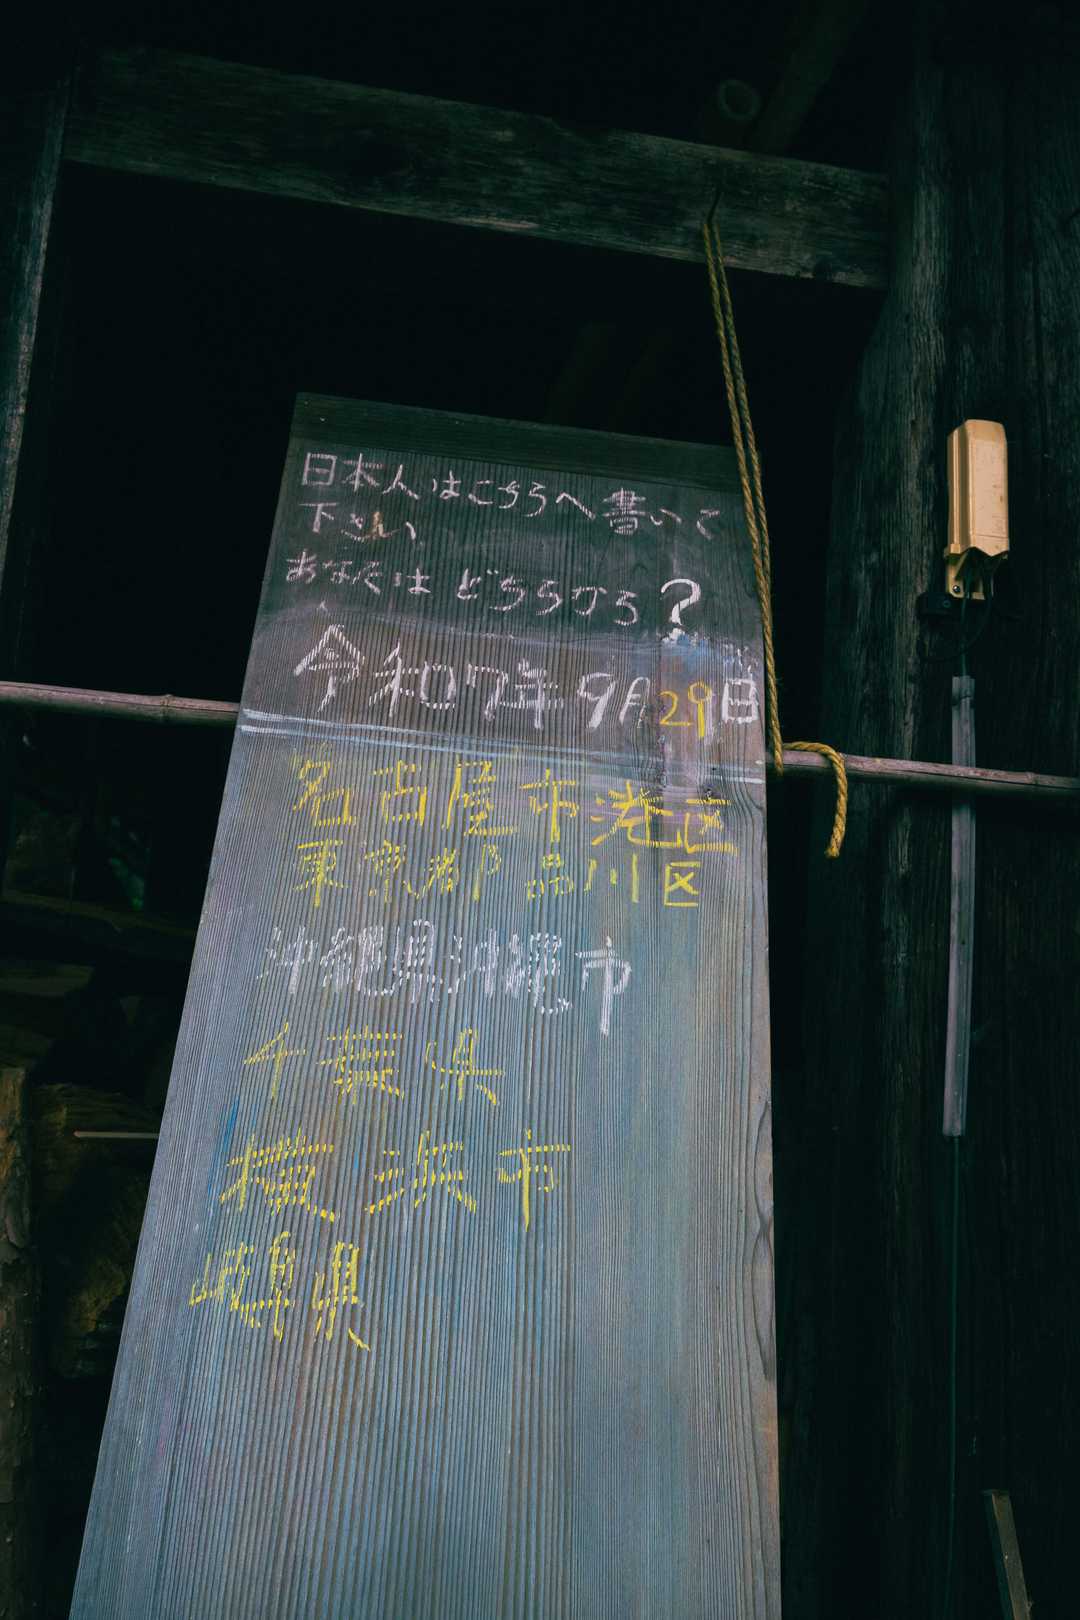 日本人はこちらへ書いて
下さい、
あなたは どちらから?
令和7年 9月29日
名古屋市港区
東京都品川区
沖縄県沖縄市
千葉県
横浜市
岐阜県